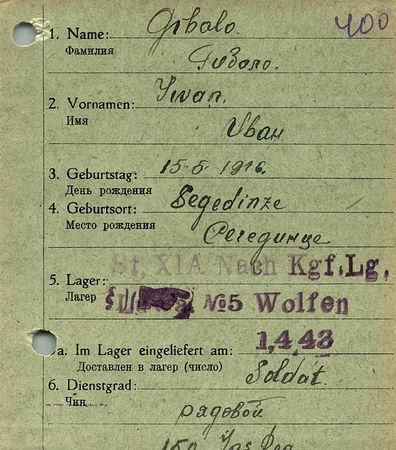 400
1. Name: Gibalo.
Фамилия Гибало.
2. Vornamen: Iwan.
Имя Иван
3. Geburtstag: 15.5.1916.
День рождения
4. Geburtsort: Segedinze
Место рождения Сегединце
St. XIA Nach Kgf.Lg.
5. Lager:
Лагер №5 Wolfen
5a. Im Lager eingeliefert am: 1.4.43
Доставлен в лагер (число)
6. Dienstgrad: Soldat
Чин рядовой